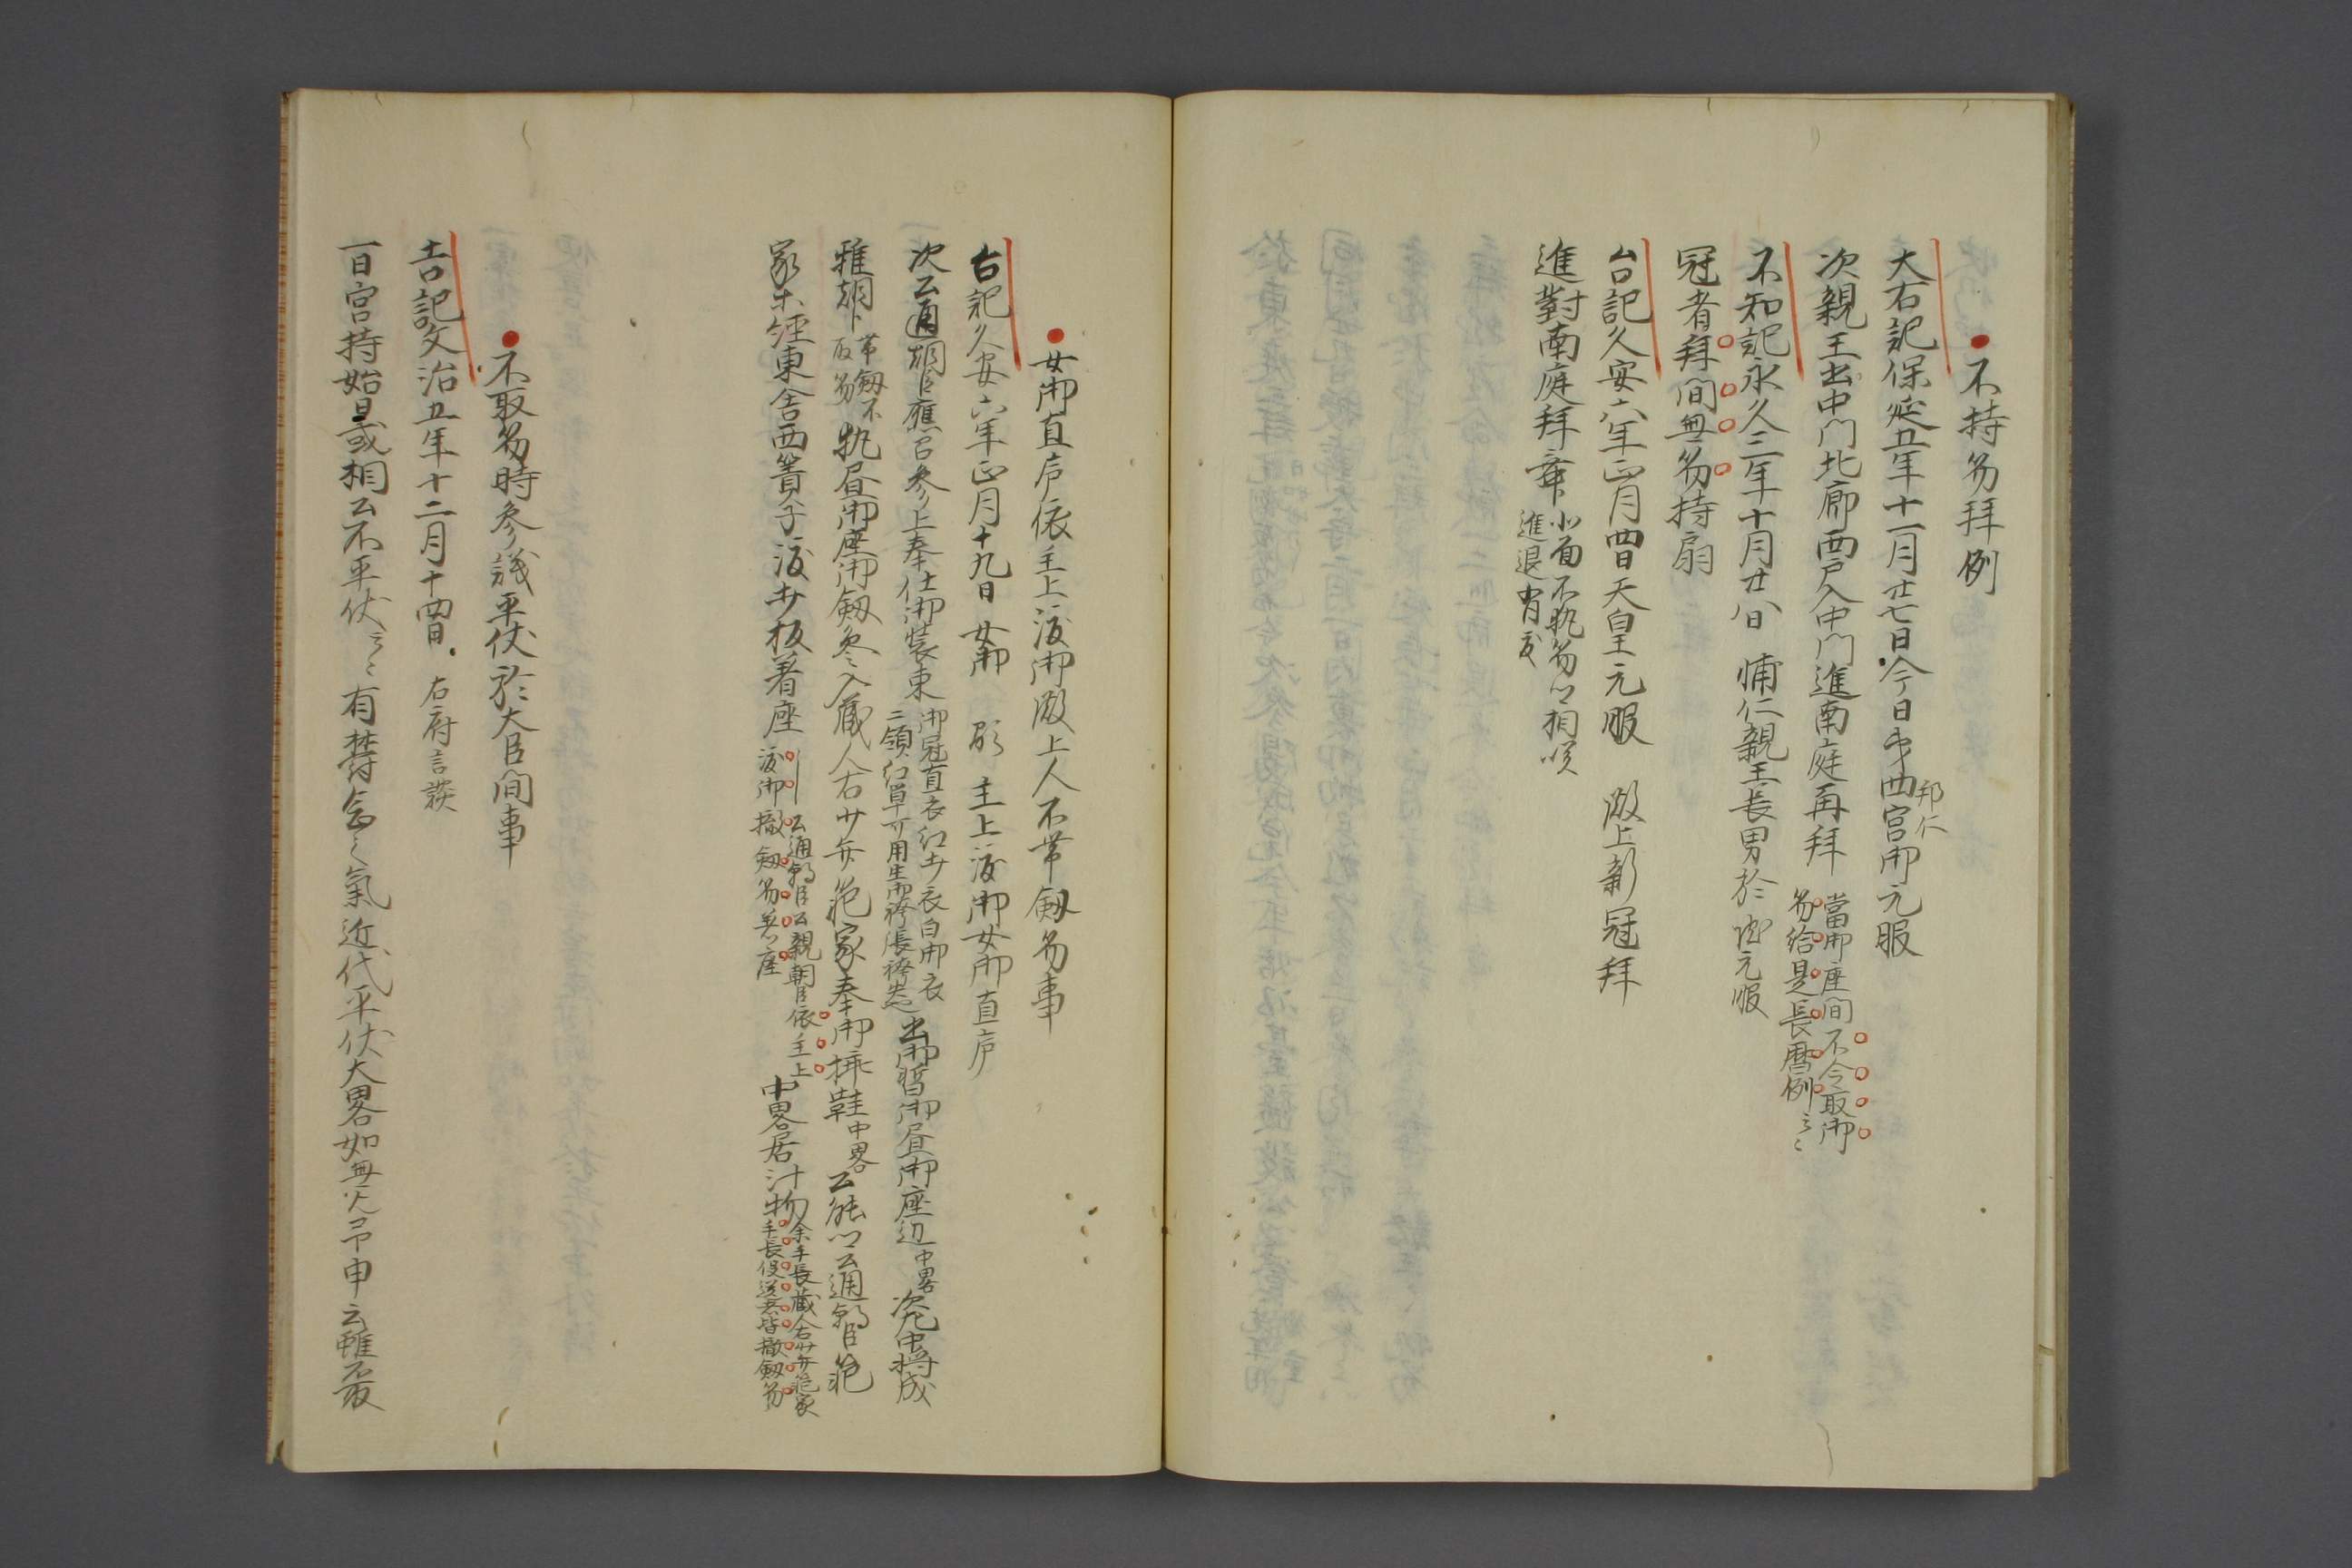 不持笏拜例
大右記保延五年十一月廿七日今日中西宮御元服
邦仁
次親王出中門北廊西戸入中門進南庭再拜
當御座間不令取御
笏給是長暦例云々
不知記永久三年十月廿八日 輔仁親王長男於院元服
冠者拜間無笏持扇
台記久安六年正月四日天皇元服 殿上新冠拜
進對南庭拜舞
公面不執笏以相咲
進退有度
女御直庐依主上渡御殿上人不帯劔笏事
台記久安六年正月十九日女御 主上渡御女御直庐
次公通朝臣應召参上奉仕御装束
御冠直衣紅打衣白御衣
二領紅単
出御暫御昼御座辺
中畧
次中将成
雅朝臣
帯劔不
取笏
執昼御座御劔参入蔵人右少弁範家奉御挿鞋
中畧
公能以公通朝臣範
家等経東舎西簀子渡打板着座
公通朝臣公親朝臣依主上
渡御撤劔笏着座
中畧居汁物
余手長蔵人右少弁範家
手長役送者皆撤劔笏
不取笏時参議平伏於大臣間事
吉記文治五年十二月十四日 右府言談
百官持始是或相公不平伏云々有禁忌之氣近代平伏大畧如無只予申云雖最